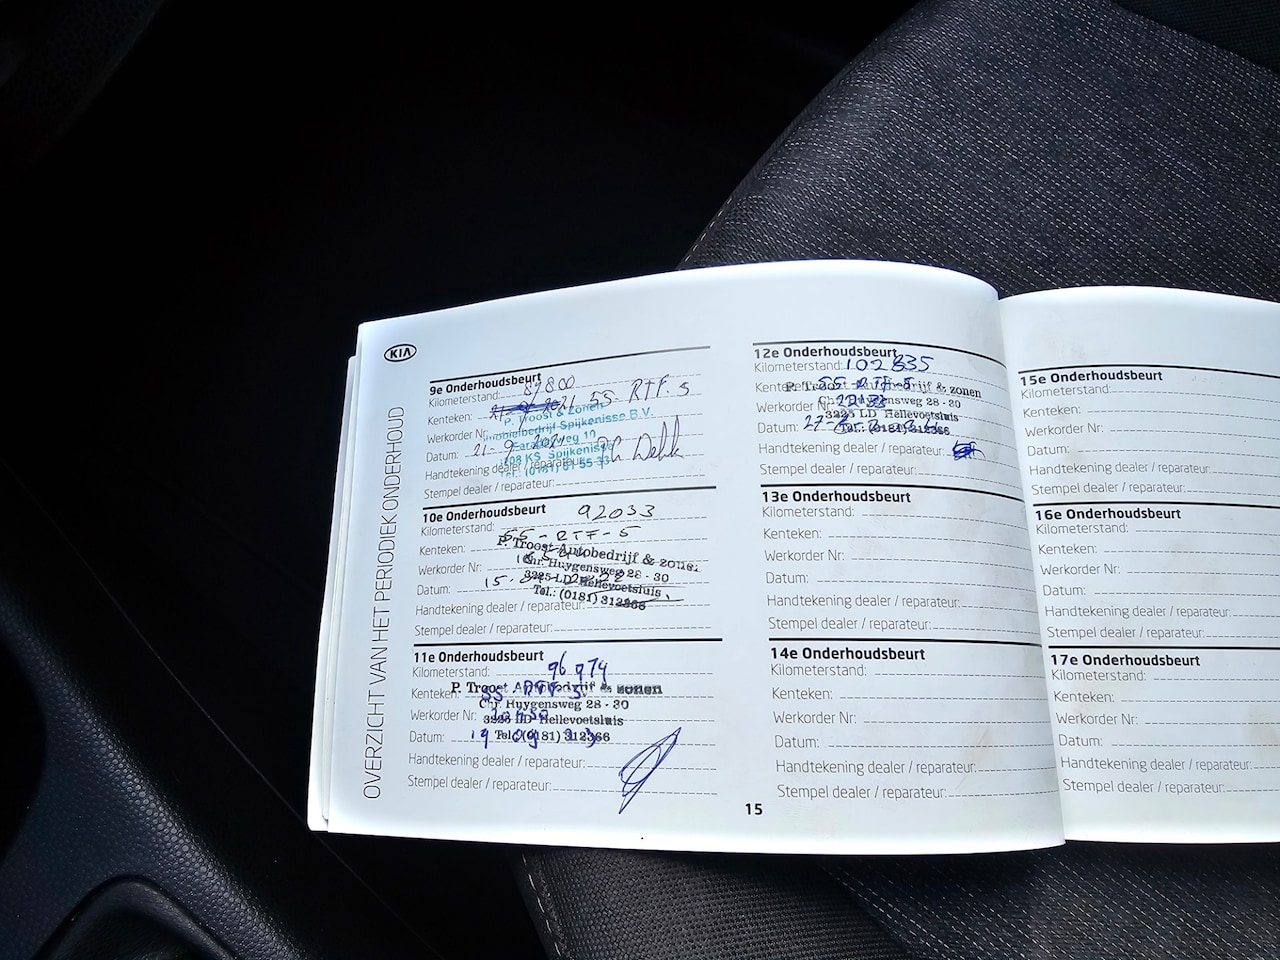 KIA
OVERZICHT VAN HET PERIODIEK ONDERHOUD
9e Onderhoudsbeurt
Kilometerstand: 89800
Kenteken: 55-RTF-5
P. Troost & Zonen
Werkorder Nr:
Spijkenisse B.V.
Datum: 21-9-2021
Handtekening dealer / reparateur:
Stempel dealer / reparateur:
10e Onderhoudsbeurt
Kilometerstand: 92033
Kenteken: 55-RTF-5
P. Troost Autobedrijf & zonen
Werkorder Nr:
Chr. Huygensweg 28 - 30
3225 LD Hellevoetsluis
Datum: 15-
Tel.: (0181) 312366
Handtekening dealer / reparateur:
Stempel dealer / reparateur:
11e Onderhoudsbeurt
Kilometerstand: 96979
Kenteken: 55-RTF-5
P. Troost Autobedrijf & zonen
Chr. Huygensweg 28 - 30
Werkorder Nr:
3225 LD Hellevoetsluis
Datum: 19 09 23
Tel.: (0181) 312366
Handtekening dealer / reparateur:
Stempel dealer / reparateur:
12e Onderhoudsbeurt
Kilometerstand: 102835
Kenteken: 55-RTF-5
P. Troost Autobedrijf & zonen
Werkorder Nr:
Chr. Huygensweg 28 - 30
3225 LD Hellevoetsluis
Datum: 27-
Tel.: (0181) 312366
Handtekening dealer / reparateur:
Stempel dealer / reparateur:
13e Onderhoudsbeurt
Kilometerstand:
Kenteken:
Werkorder Nr:
Datum:
Handtekening dealer / reparateur:
Stempel dealer / reparateur:
14e Onderhoudsbeurt
Kilometerstand:
Kenteken:
Werkorder Nr:
Datum:
Handtekening dealer / reparateur:
Stempel dealer / reparateur:
15
15e Onderhoudsbeurt
Kilometerstand:
Kenteken:
Werkorder Nr:
Datum:
Handtekening dealer / reparateur:
Stempel dealer / reparateur:
16e Onderhoudsbeurt
Kilometerstand:
Kenteken:
Werkorder Nr:
Datum:
Handtekening dealer / reparateur:
Stempel dealer / reparateur:
17e Onderhoudsbeurt
Kilometerstand:
Kenteken:
Werkorder Nr:
Datum:
Handtekening dealer / reparateur:
Stempel dealer / reparateur: